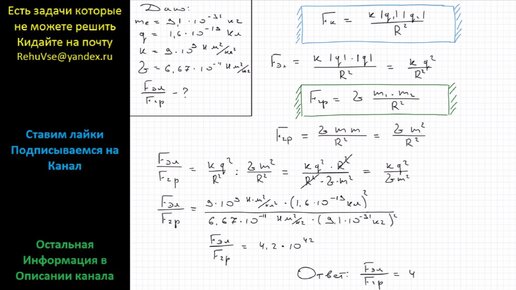 Есть задачи которые
не можете решить
Кидайте на почту
RehuVse@yandex.ru
Ставим лайки
Подписываемся на
Канал
Остальная
Информация в
Описании канала
Дано:
me = 9,1 · 10⁻³¹ кг
q = 1,6 · 10⁻¹⁹ Кл
K = 9 · 10⁹ Н м²/Кл²
G = 6,67 · 10⁻¹¹ Н м²/кг²
Fэл/Fгр - ?
Fк = k |q₁| |q₂| / R²
Fэл = k |q| · |q| / R² = k q² / R²
Fгр = G m₁ · m₂ / R²
Fгр = G m m / R² = G m² / R²
Fэл/Fгр = k q² / R² : G m² / R² = k q² · R² / R² · G · m² = k q² / G m²
Fэл/Fгр = 9 · 10⁹ Н·м²/Кл² · (1,6 · 10⁻¹⁹ Кл)² / 6,67 · 10⁻¹¹ Н м²/кг² · (9,1 · 10⁻³¹ кг)²
Fэл/Fгр = 4,2 · 10⁴²
Ответ: Fэл/Fгр = 4